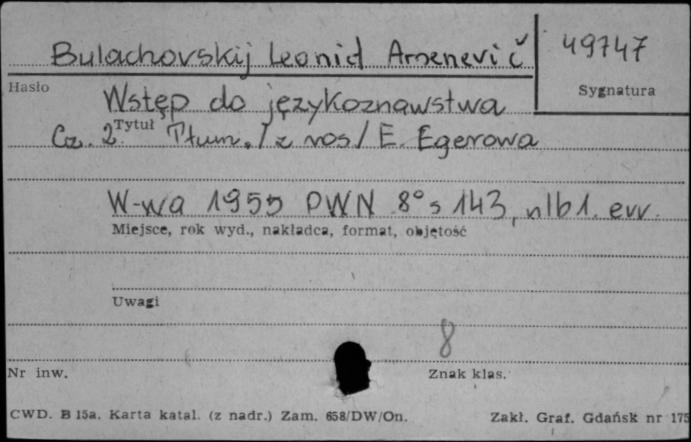 Bulachovskij Leonid Arsenevič 49747
Hasło Sygnatura
Wstęp do językoznawstwa
Tytuł
Cz. 2. Tłum. /z ros/ E. Egerowa
W-wa 1955 PWN 8° s 143, nlb 1. err.
Miejsce, rok wyd., nakładca, format, objętość
Uwagi
8
Nr inw. Znak klas.
CWD. B 15a. Karta katal. (z nadr.) Zam. 658/DW/On. Zakł. Graf. Gdańsk nr 175